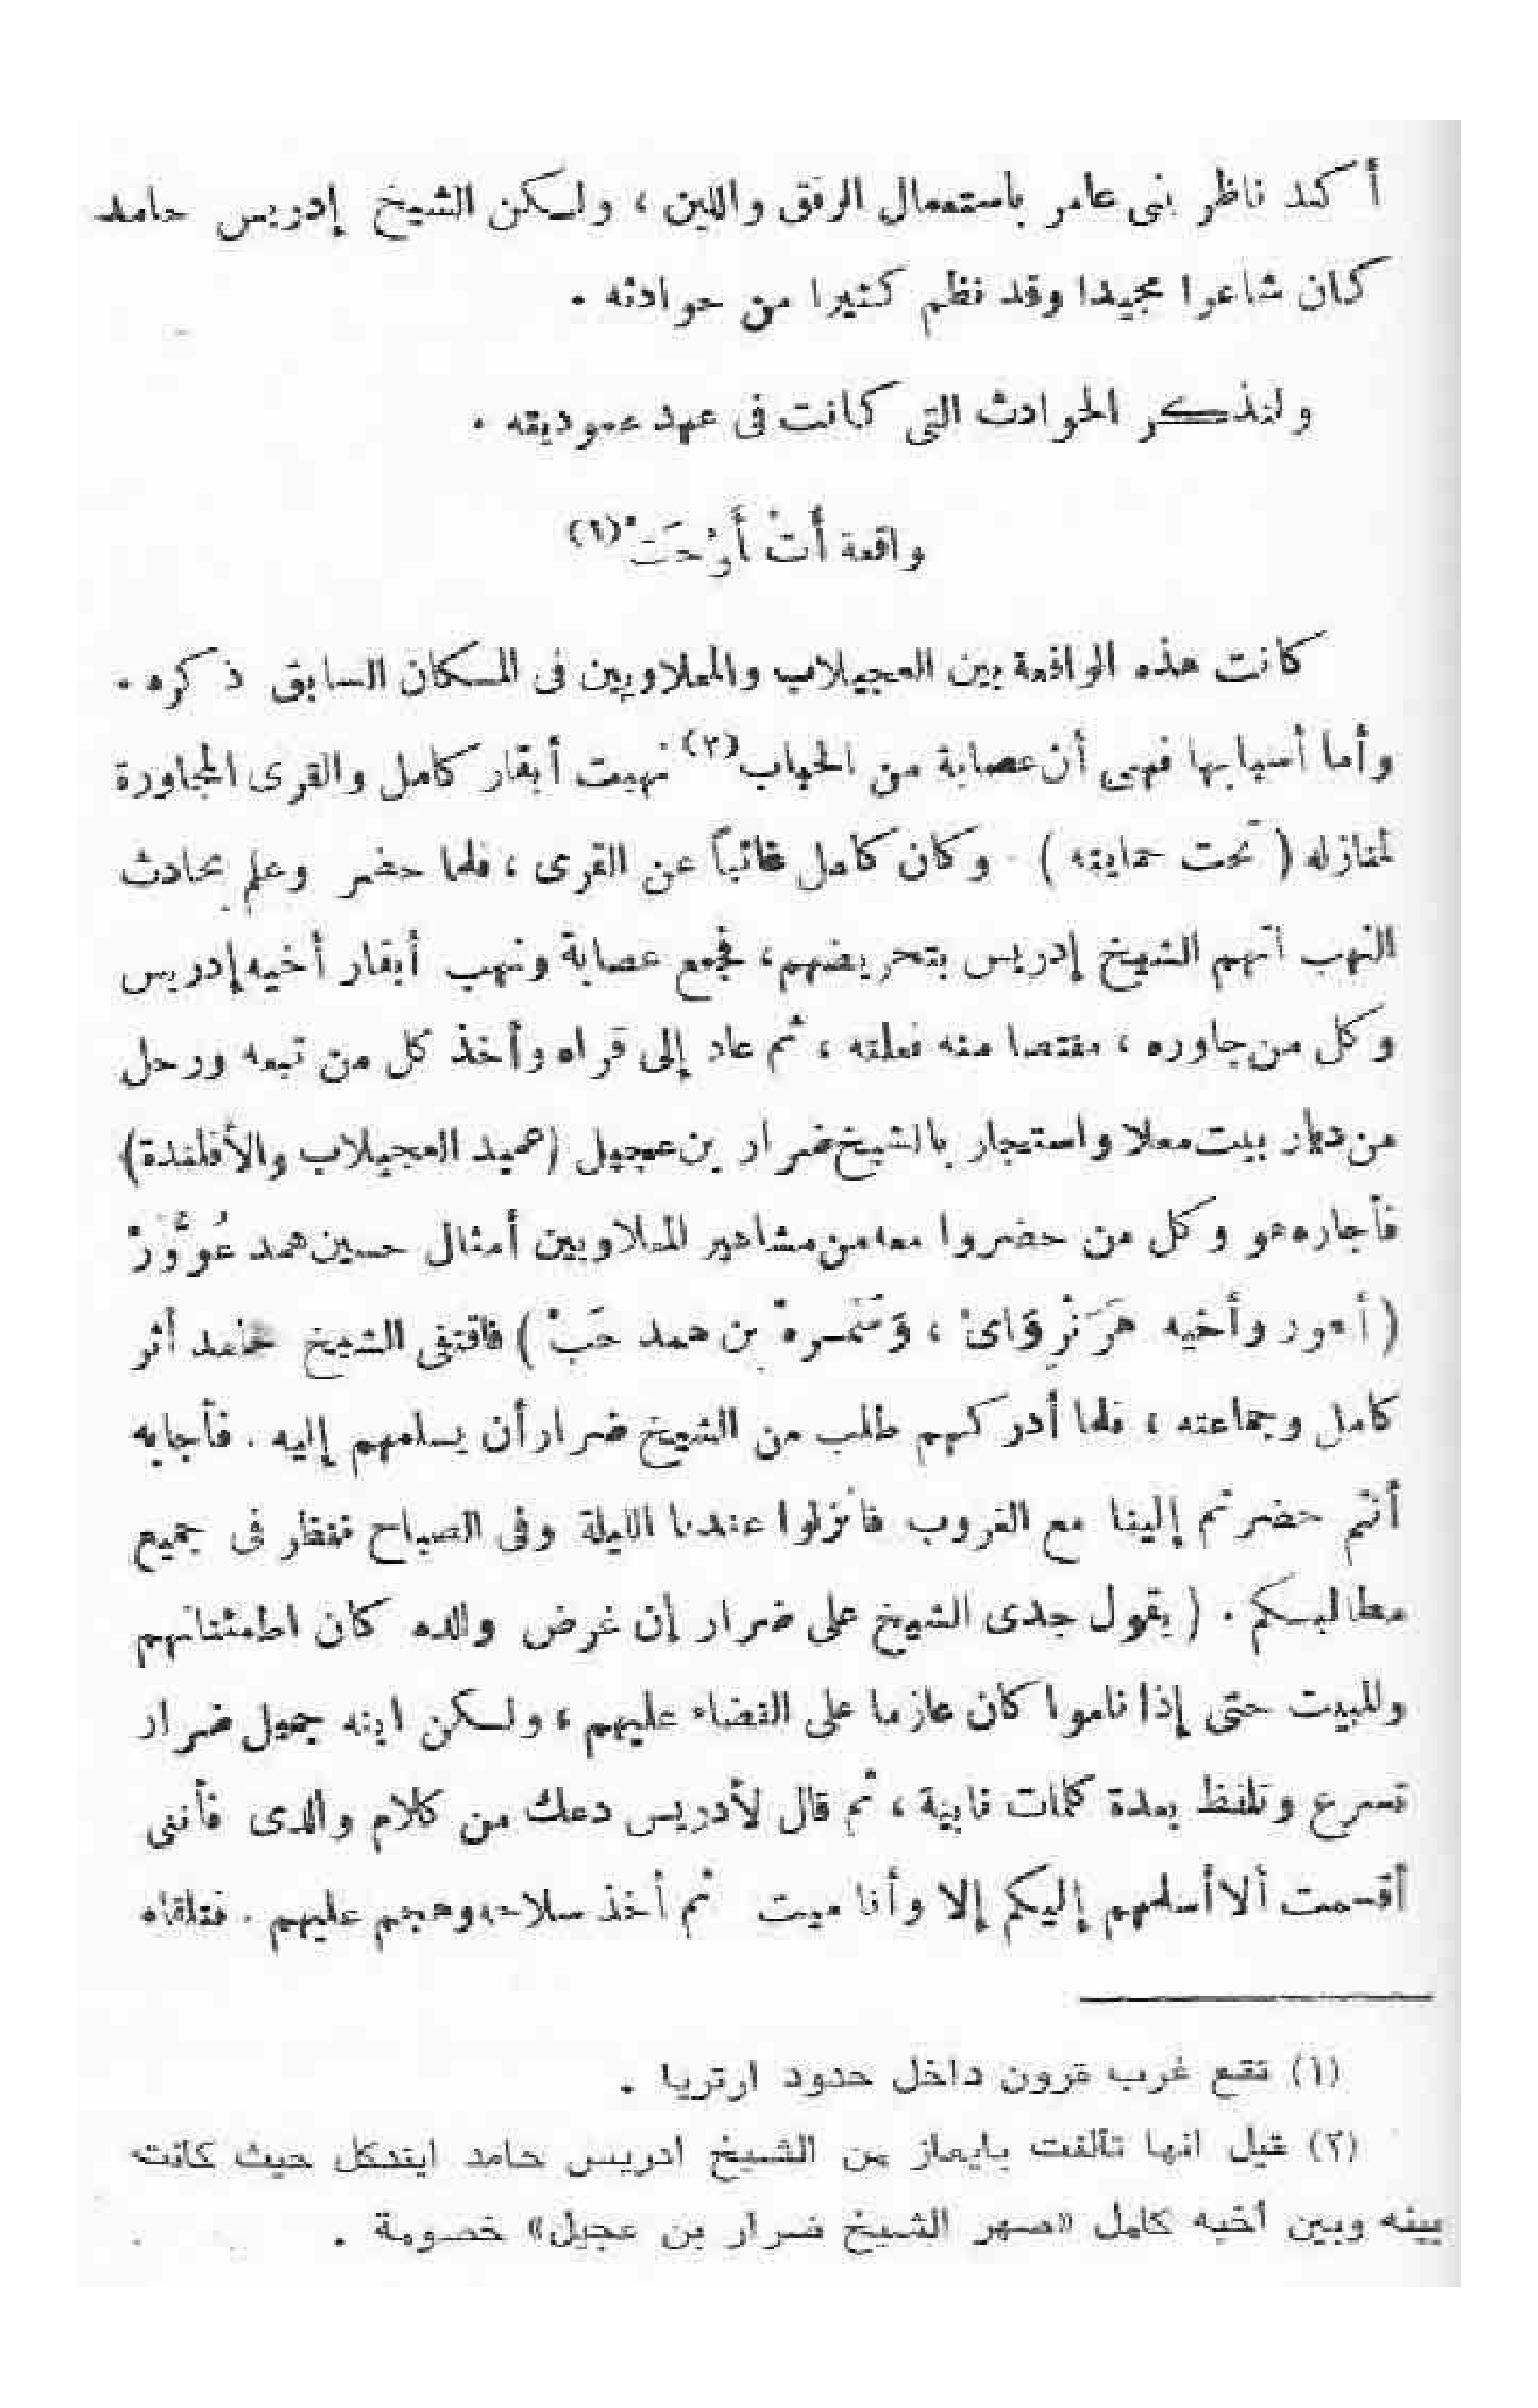 أكد ناظر بنى عامر باستعمال الرفق واللين ، ولكن الشيخ إدريس حامد
كان شاعرا مجيدا وقد نظم كثيرا من حوادثه .
ولنذكر الحوادث التى كانت فى عهد عموديقه .
واقعة أُتْ أَوْحَتْ (١)
كانت هذه الواقعة بين العجيلاب والمعلاويين فى المكان السابق ذكره .
وأما أسبابها فهى أن عصابة من الحباب (٢) نهبت أبقار كامل والقرى المجاورة
لمنازله ( تحت حمايته ) وكان كامل غائباً عن القرى ، فلما حضر وعلم بحادث
النهب اتهم الشيخ إدريس بتحريضهم ، فجمع عصابة ونهب أبقار أخيه إدريس
وكل من جاوره ، مقتصا منه فعلته ، ثم عاد إلى قراه وأخذ كل من تبعه ورحل
من ديار بيت معلا واستجار بالشيخ ضرار بن عجيل (عميد العجيلاب والأفلندة)
فأجاره هو وكل من حضروا معه من مشاهير المعلاويين أمثال حسين همد عُوَّورْ
( أعور وأخيه هَرَنْرِوَّاىْ ، بن همد حَبْ ) فاقتفى الشيخ أثر
كامل وجماعته ، فلما أدركهم طلب من الشيخ ضرار أن يسلمهم إليه . فأجابه
أنتم حضرتم إلينا مع الغروب فانزلوا عندنا الليلة وفى الصباح ننظر فى جميع
مطالبكم . ( يقول جدى الشيخ على ضرار إن غرض والده كان اطمئنانهم
وللمبيت حتى إذا ناموا كان عازما على القضاء عليهم ، ولكن ابنه جميل ضرار
تسرع وتلفظ بعدة كلمات نابية ، ثم قال لأدريس دعك من كلام والدى فأننى
أقسمت ألا أسلمهم إليكم إلا وأنا ميت ثم أخذ سلاحه وهجم عليهم . فتلقاه
(١) تقع غرب قرون داخل حدود ارتريا .
(٢) قيل انها تألفت بايعاز من الشيخ ادريس حامد ايتدكل حيث كانت
بينه وبين أخيه كامل «صهر الشيخ ضرار بن عجيل» خصومة .